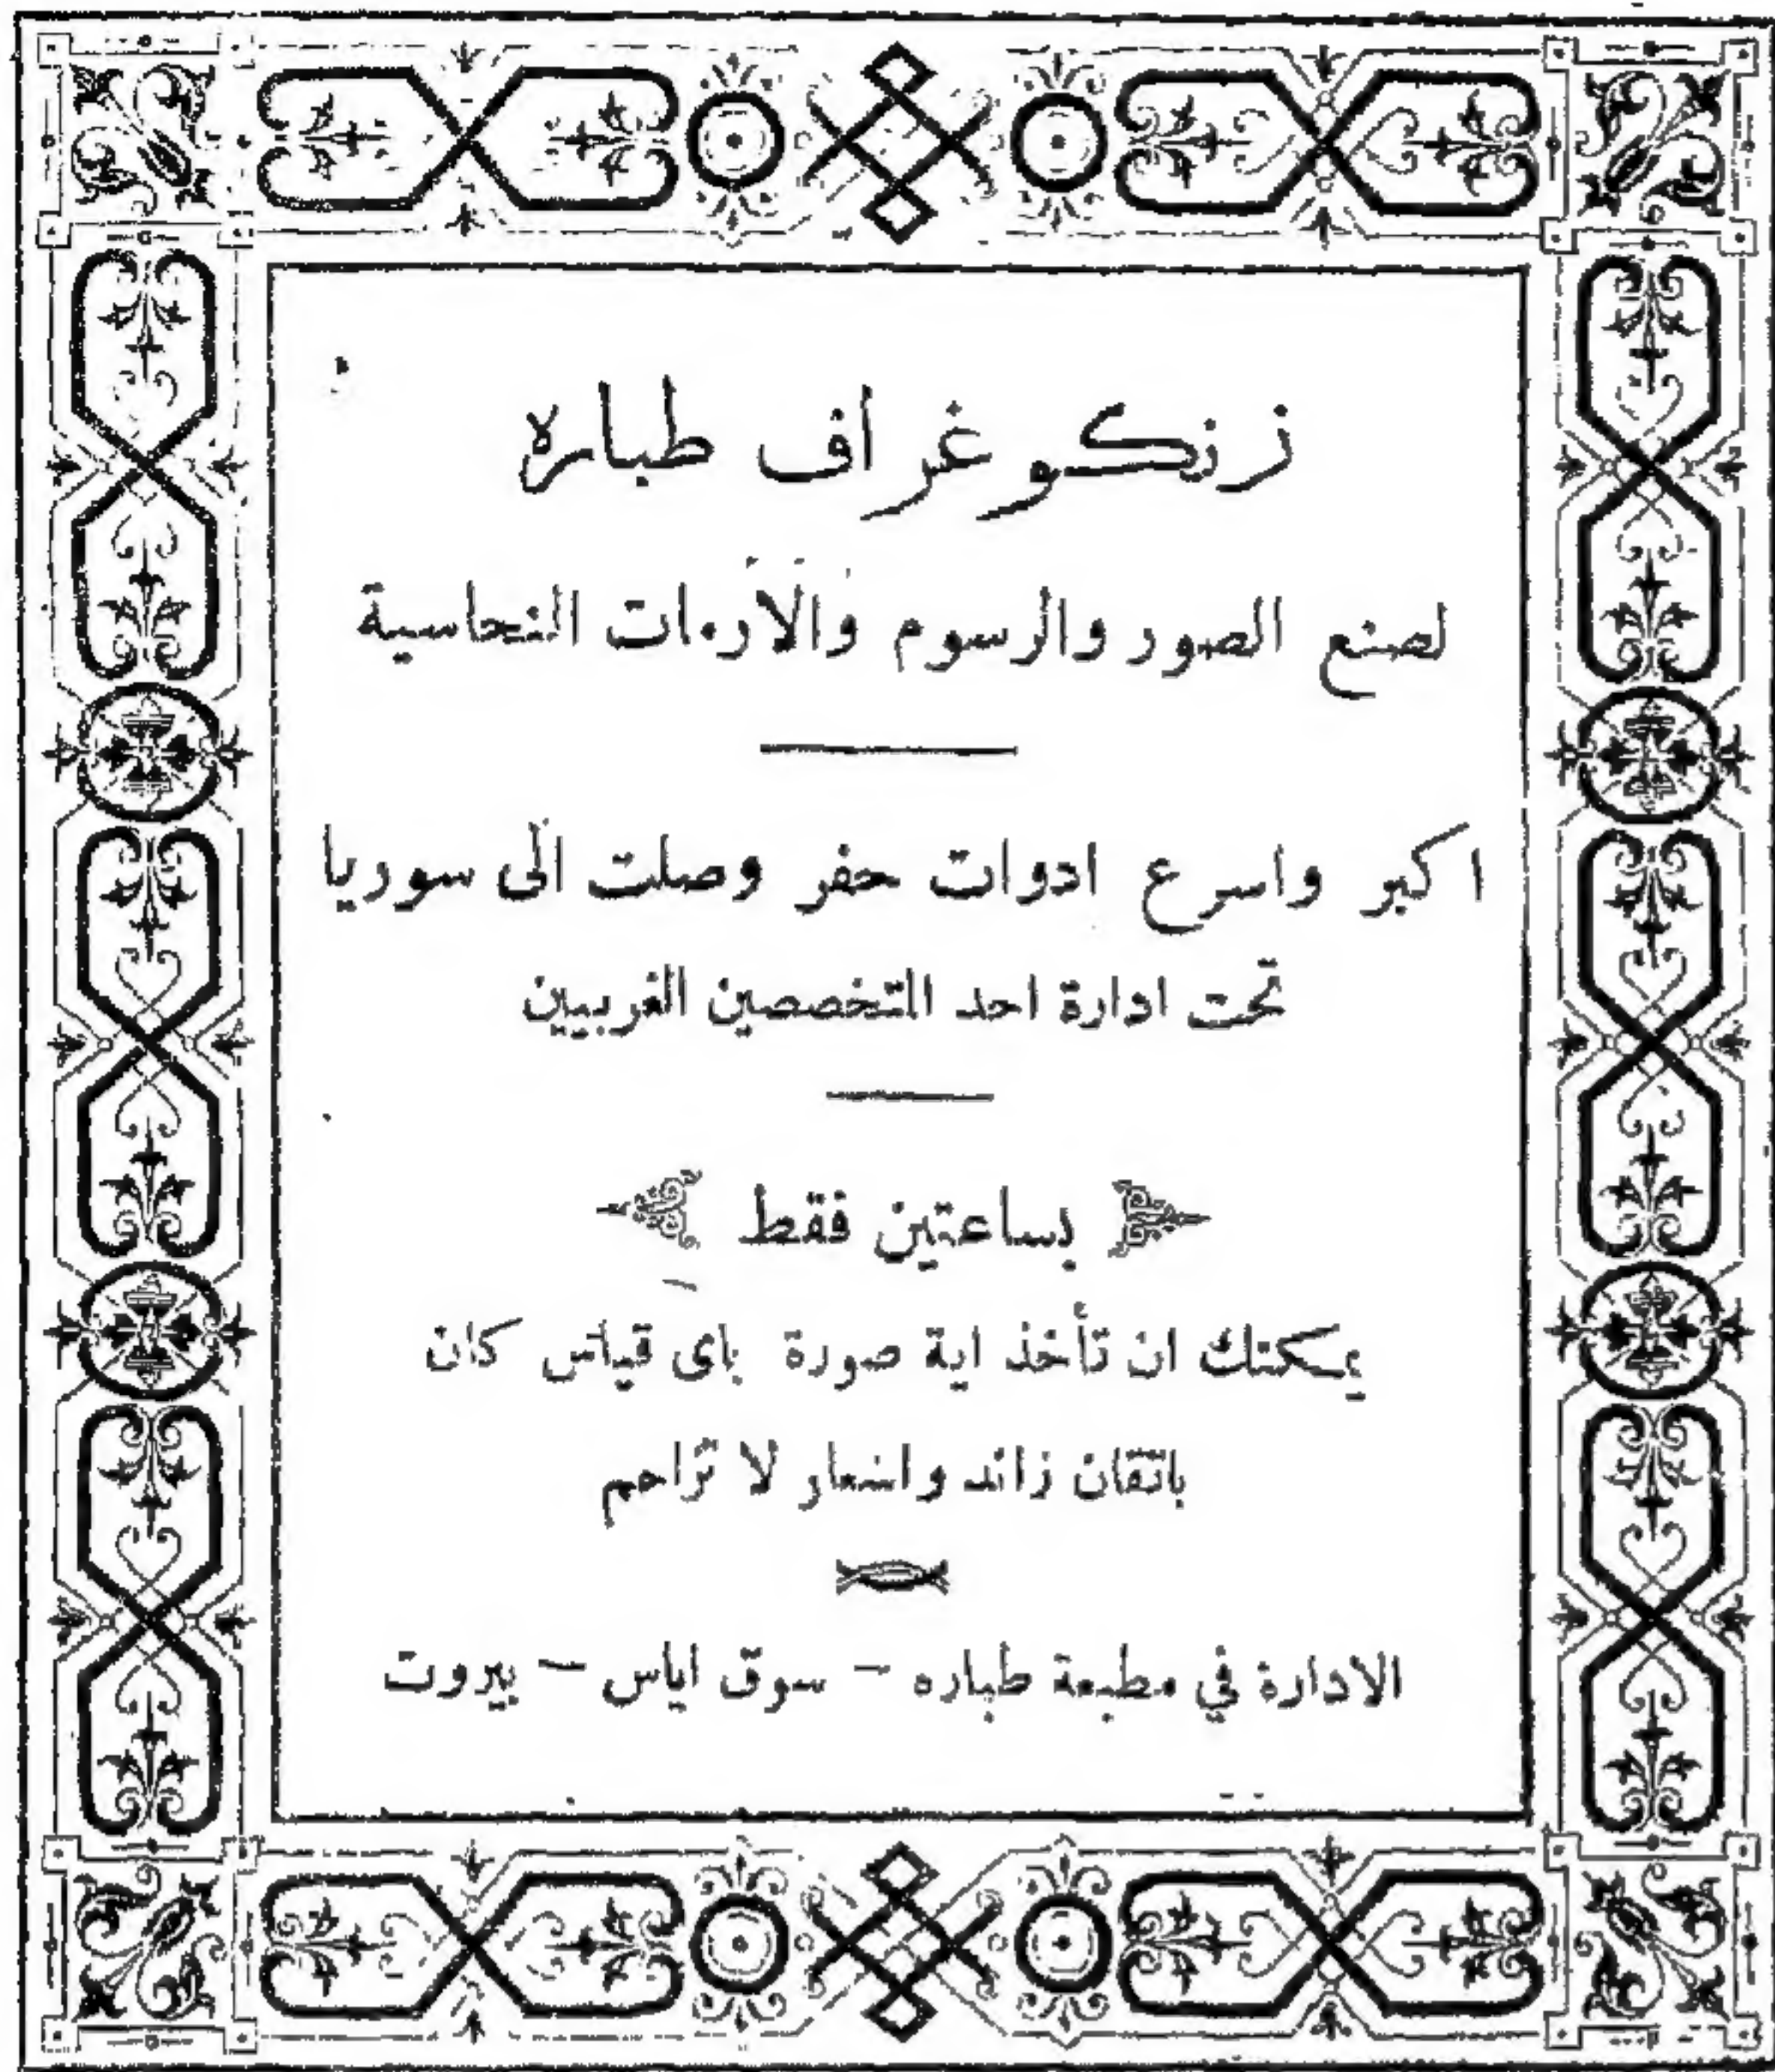 زنكوغراف طباره
لصنع الصور والرسوم والأرمات النحاسية
اكبر واسرع ادوات حفر وصلت الى سوريا
تحت ادارة احد المتخصصين الغربيين
بساعتين فقط
يمكنك ان تأخذ اية صورة باى قياس كان
باتقان زائد واسعار لا تزاحم
الادارة في مطبعة طباره – سوق اياس – بيروت